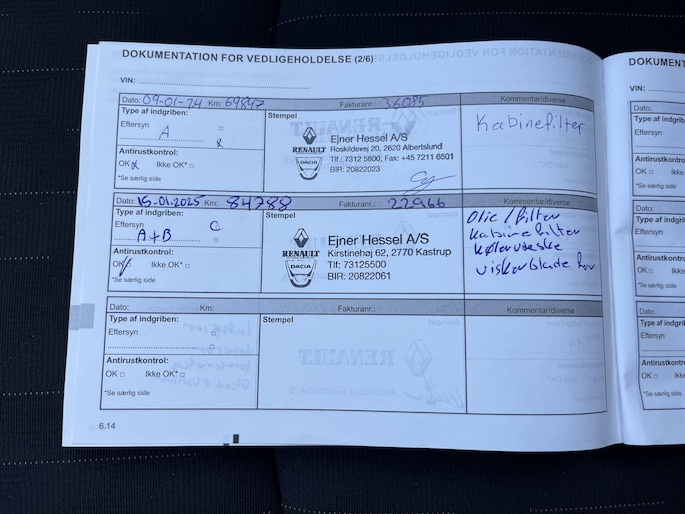 DOKUMENTATION FOR VEDLIGEHOLDELSE (2/6)
VIN:
Dato: 09-01-24 Km: 69847 Fakturanr.: 36085 Kommentar/diverse
Type af indgriben:
Eftersyn
A
Antirustkontrol:
OK Ikke OK*
*Se særlig side
Stempel
RENAULT
DACIA
Ejner Hessel A/S
Roskildevej 20, 2620 Albertslund
Tlf.: 7312 5800, Fax: +45 7211 6501
BIR: 20822023
Kabinefilter
Dato: 15.01.2025 Km: 84788 Fakturanr.: 22966 Kommentar/diverse
Type af indgriben:
Eftersyn C
A+B
Antirustkontrol:
OK Ikke OK*
*Se særlig side
Stempel
RENAULT
DACIA
Ejner Hessel A/S
Kirstinehøj 62, 2770 Kastrup
Tlf: 73125500
BIR: 20822061
Olie/filter
Kabinefilter
Kølervæske
viskerblade for
Dato: Km: Fakturanr.: Kommentar/diverse
Type af indgriben:
Eftersyn
Antirustkontrol:
OK Ikke OK*
*Se særlig side
Stempel
6.14
DOKUMENT
VIN:
Dato:
Type af indgri
Eftersyn
Antirustkontro
OK Ikke
*Se særlig side
Dato:
Type af indgri
Eftersyn
Antirustkontr
OK Ikke
*Se særlig side
Dato:
Type af indg
Eftersyn
Antirustkont
OK Ikk
*Se særlig side